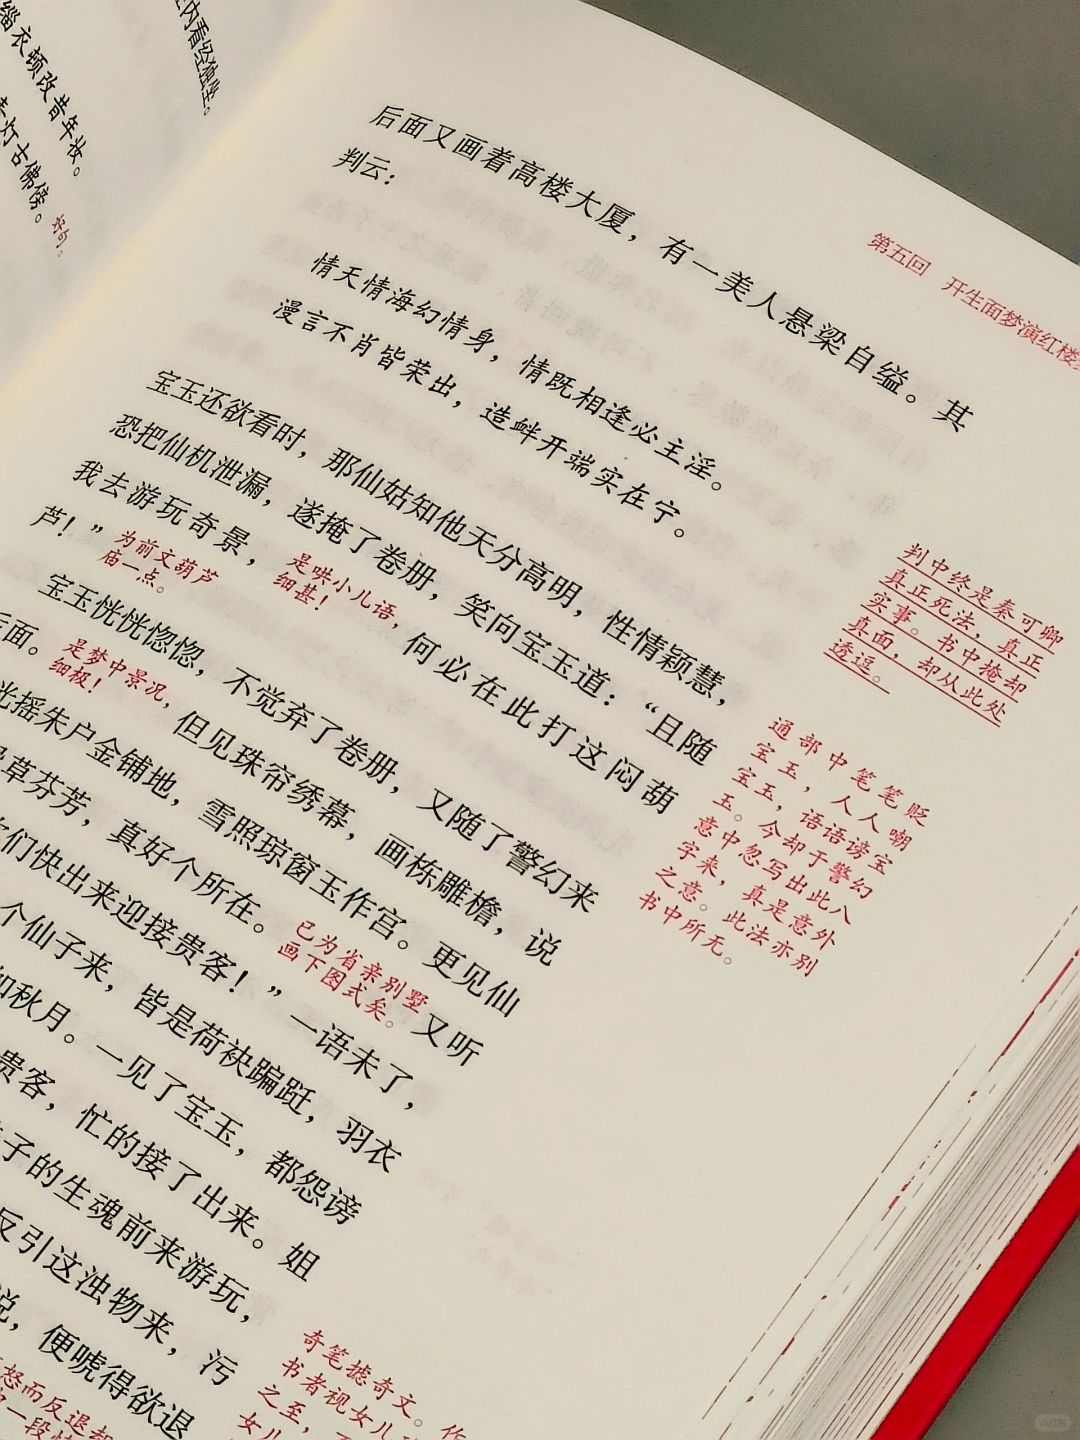 缁衣顿改昔年妆。
灯古佛傍。
好句。
内看经独坐。
第五回 开生面梦演红楼
后面又画着高楼大厦，有一美人悬梁自缢。其
判云：
情天情海幻情身，情既相逢必主淫。
漫言不肖皆荣出，造衅开端实在宁。
宝玉还欲看时，那仙姑知他天分高明，性情颖慧，
恐把仙机泄漏，遂掩了卷册，笑向宝玉道：“且随
我去游玩奇景，是哄小儿语，细甚！何必在此打这闷葫
芦！”为前文葫芦庙一点。
宝玉恍恍惚惚，不觉弃了卷册，又随了警幻来
后面。是梦中景况，细极！但见珠帘绣幕，画栋雕檐，说
光摇朱户金铺地，雪照琼窗玉作宫。更见仙
草芬芳，真好个所在。已为省亲别墅画下图式矣。又听
们快出来迎接贵客！”一语未了，
个仙子来，皆是荷袂蹁跹，羽衣
如秋月。一见了宝玉，都怨谤
贵客，忙的接了出来。姐
子的生魂前来游玩，
反引这浊物来，污
说，便唬得欲退
怒而反退却
一段
判中终是秦可卿
真正死法，真正
实事。书中掩却
真面，却从此处
透逗。
通部中笔笔贬
宝玉，人人嘲
宝玉，语语谤宝
玉。今却于警幻
意中忽写出此八
字来，真是意外
之意。此法亦别
书中所无。
奇笔摅奇文。作
书者视女儿
之至，
女儿
小红书